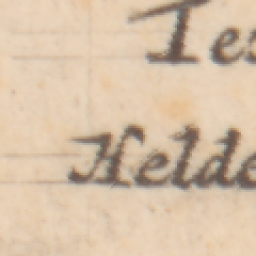 Tes
Helde